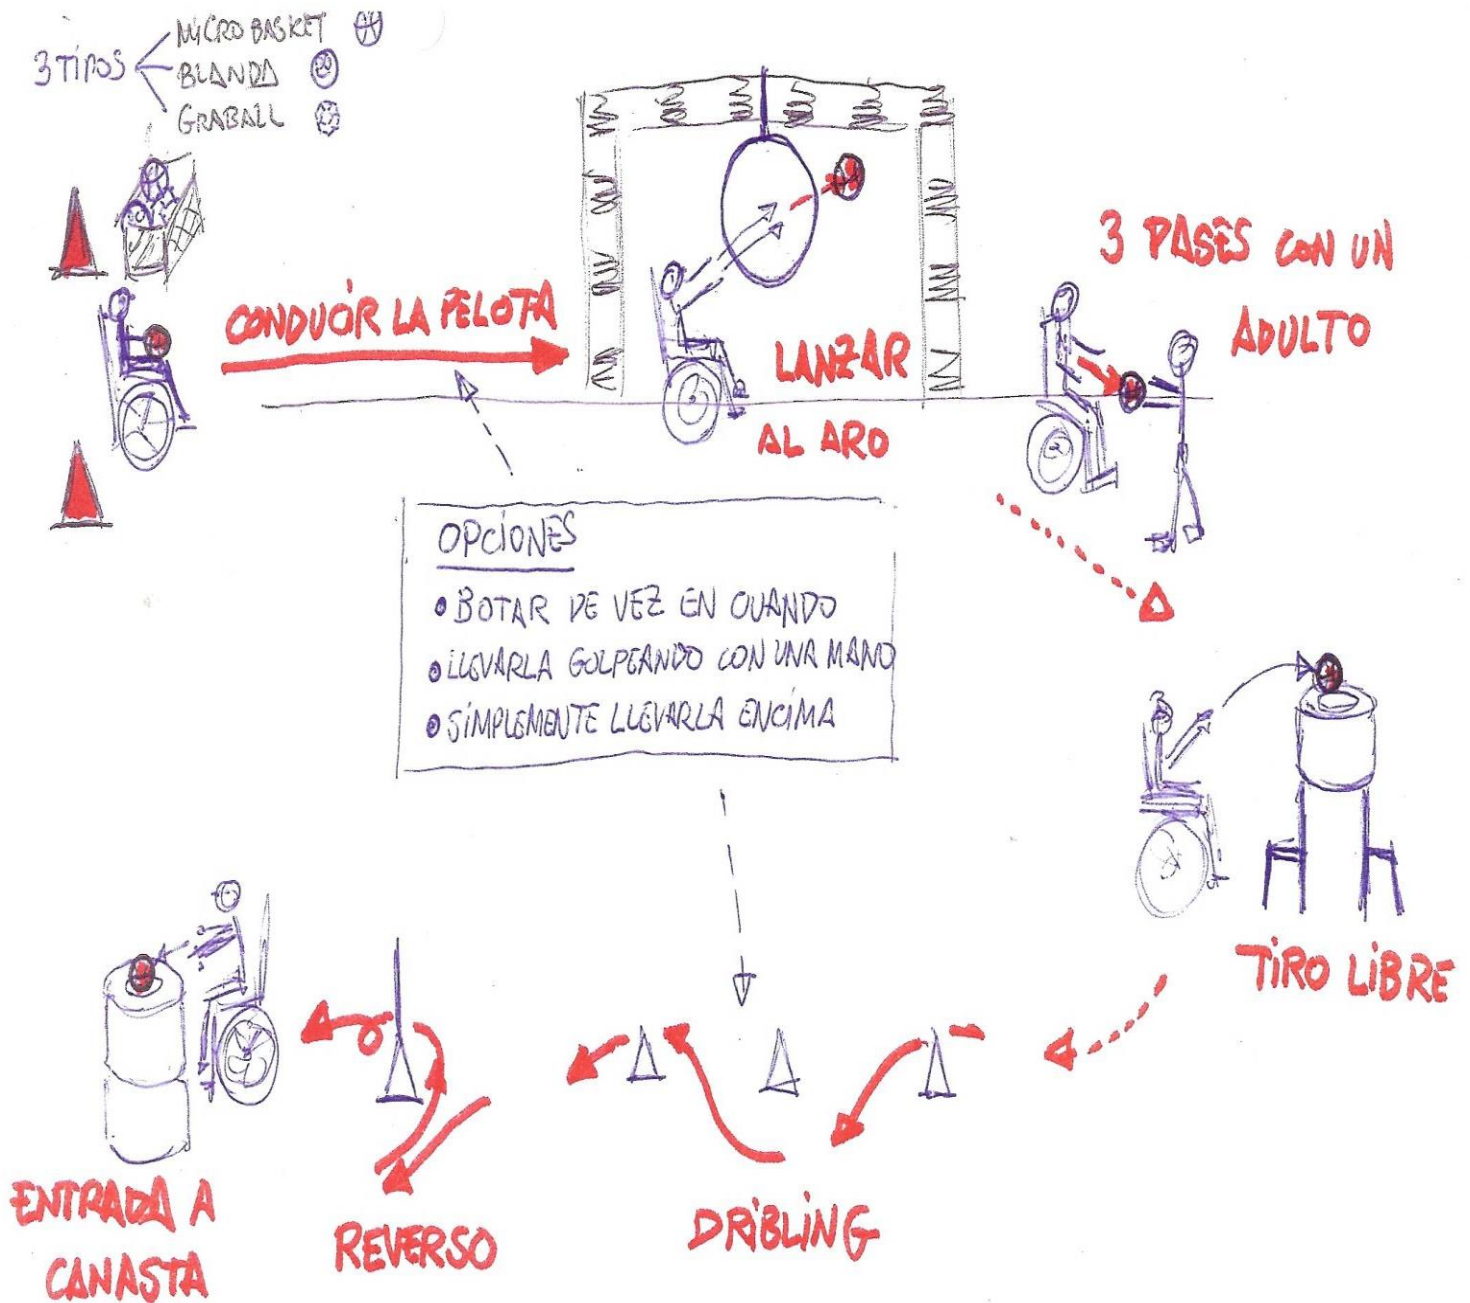 3 TIPOS
MICRO BASKET
BLANDA
GRABALL
CONDUCIR LA PELOTA
LANZAR
AL ARO
3 PASES CON UN
ADULTO
OPCIONES
• BOTAR DE VEZ EN CUANDO
• LLEVARLA GOLPEANDO CON UNA MANO
• SIMPLEMENTE LLEVARLA ENCIMA
TIRO LIBRE
DRIBLING
REVERSO
ENTRADA A
CANASTA